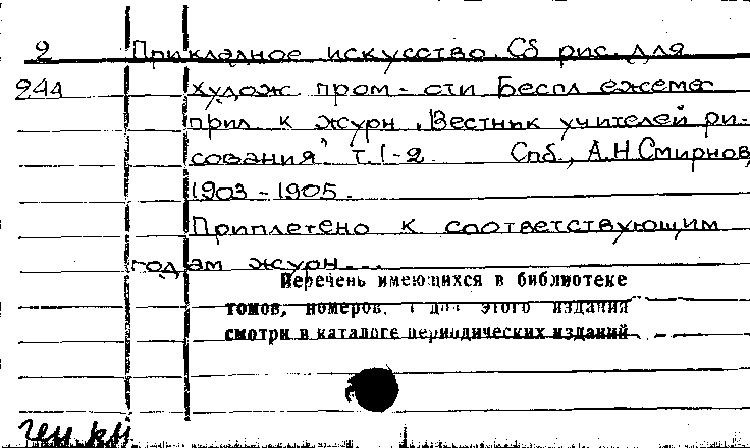 2 Прикладное искусство. Сб рис. для
244 худож пром-сти Беспл ежемес
прил к журн. "Вестник учителей ри-
сования" т. 1-2 Спб., А.Н.Смирнов,
1903-1905.
Приплетено к соответствующим
годам журн...
Перечень имеющихся в библиотеке
томов, номеров, для этого издания
смотри в каталоге периодических изданий